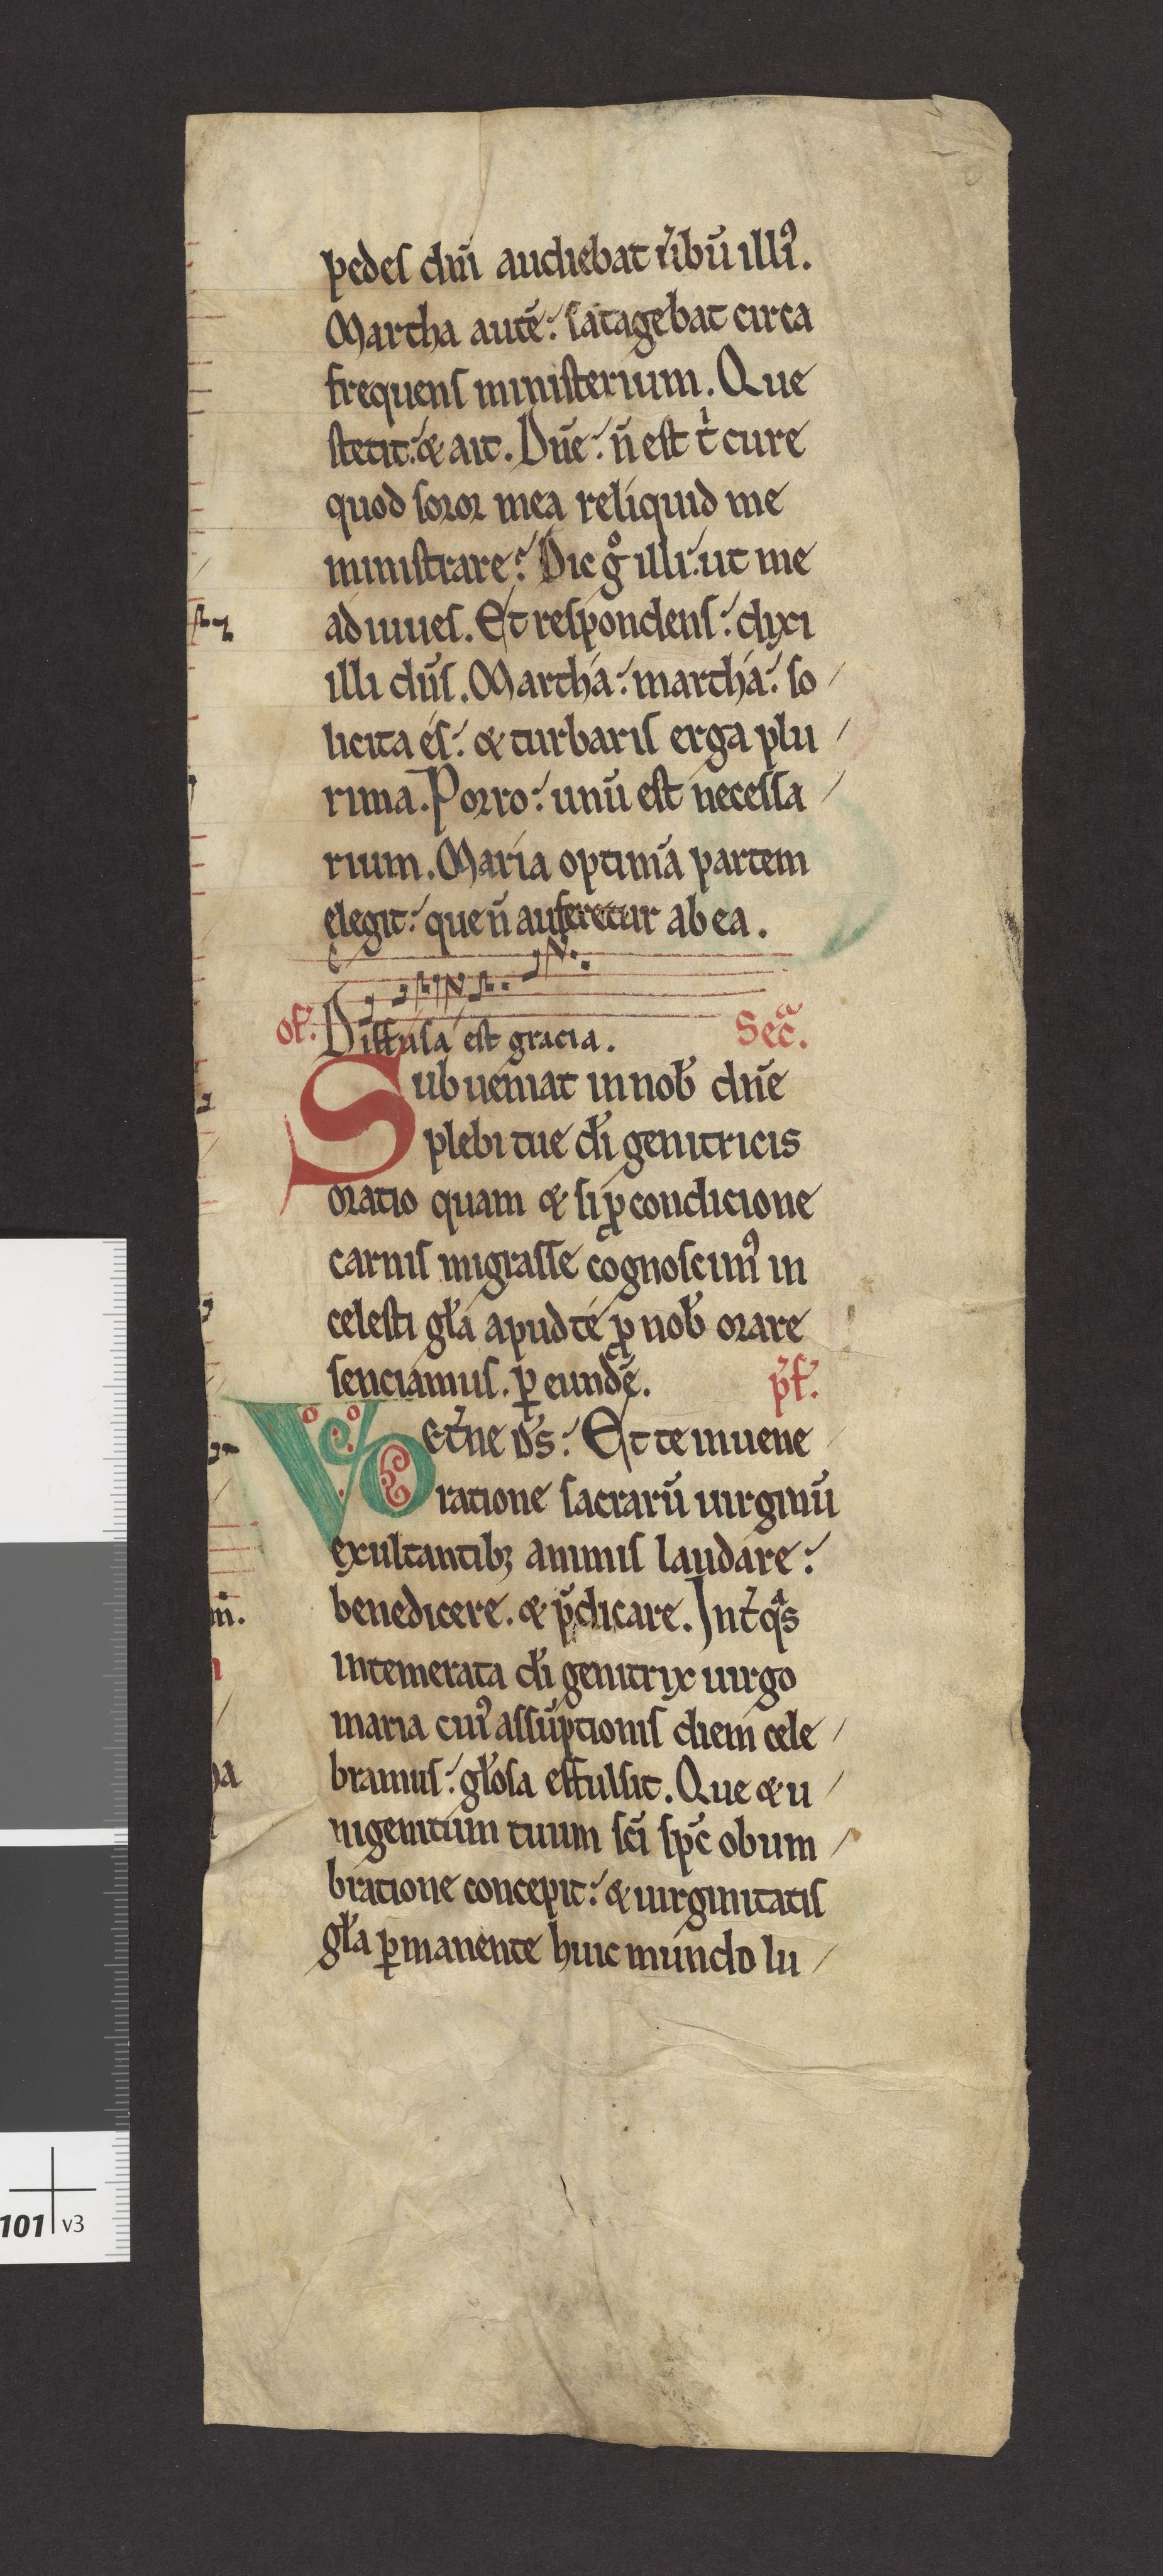 pedes dn̄i audiebat u̓ibū illi᾽.
Martha autē: satagebat circa
frequens ministerium. Que
stetit: & ait. Dn̄e: n̄ est t̓ cure
quod soror mea reliquid me
ministrare? Dic g̊ illi: ut me
adiuues. Et respondens: dixi
illi dn̄s. Martha: martha: so
licita es: & turbaris erga plu
rima. Porro: unū est necessa
rium. Maria optimā partem
elegit: que n̄ auferetur ab ea.
of. Diffusa est gracia. Sec̄a.
Subueniat in nob̄ dn̄e
plebi tue d̄i genitricis
oratio quam & si ꝓ condicione
carnis migrasse cognoscim᾽ in
celesti gl̄a apud te ꝓ nob̄ orare
senciamus. ꝑ eundē. p̄f.
VD et̓ne d̄s: Et te in uene
ratione sacrarū uirginū
exultantibꝫ animis laudare:
benedicere. & p̄dicare. Int̓ qᵃs
intemerata d̄i genitrix uirgo
maria cui᾽ assūptionis diem cele
bramus: gl̄osa effulsit. Que & u
nigenitum tuum sc̄i sp̄c obum
bratione concepit: & uirginitatis
gl̄a ꝑmanente huic mundo lu